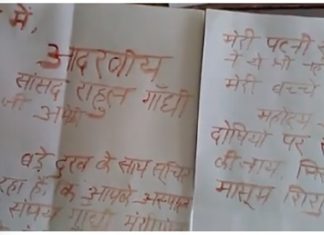 में,
आदरणीय
सांसद राहुल गाँधी
जी अमेठी
बड़े दुख के साथ सूचित
रहा हूँ कि आपके अस्पताल
संजय गाँधी मुंशीगंज
मेरी पत्नी
ने से भी
मेरी बच्चे
महोदय
दोषियों पर
की जाय
मासूम शिशु